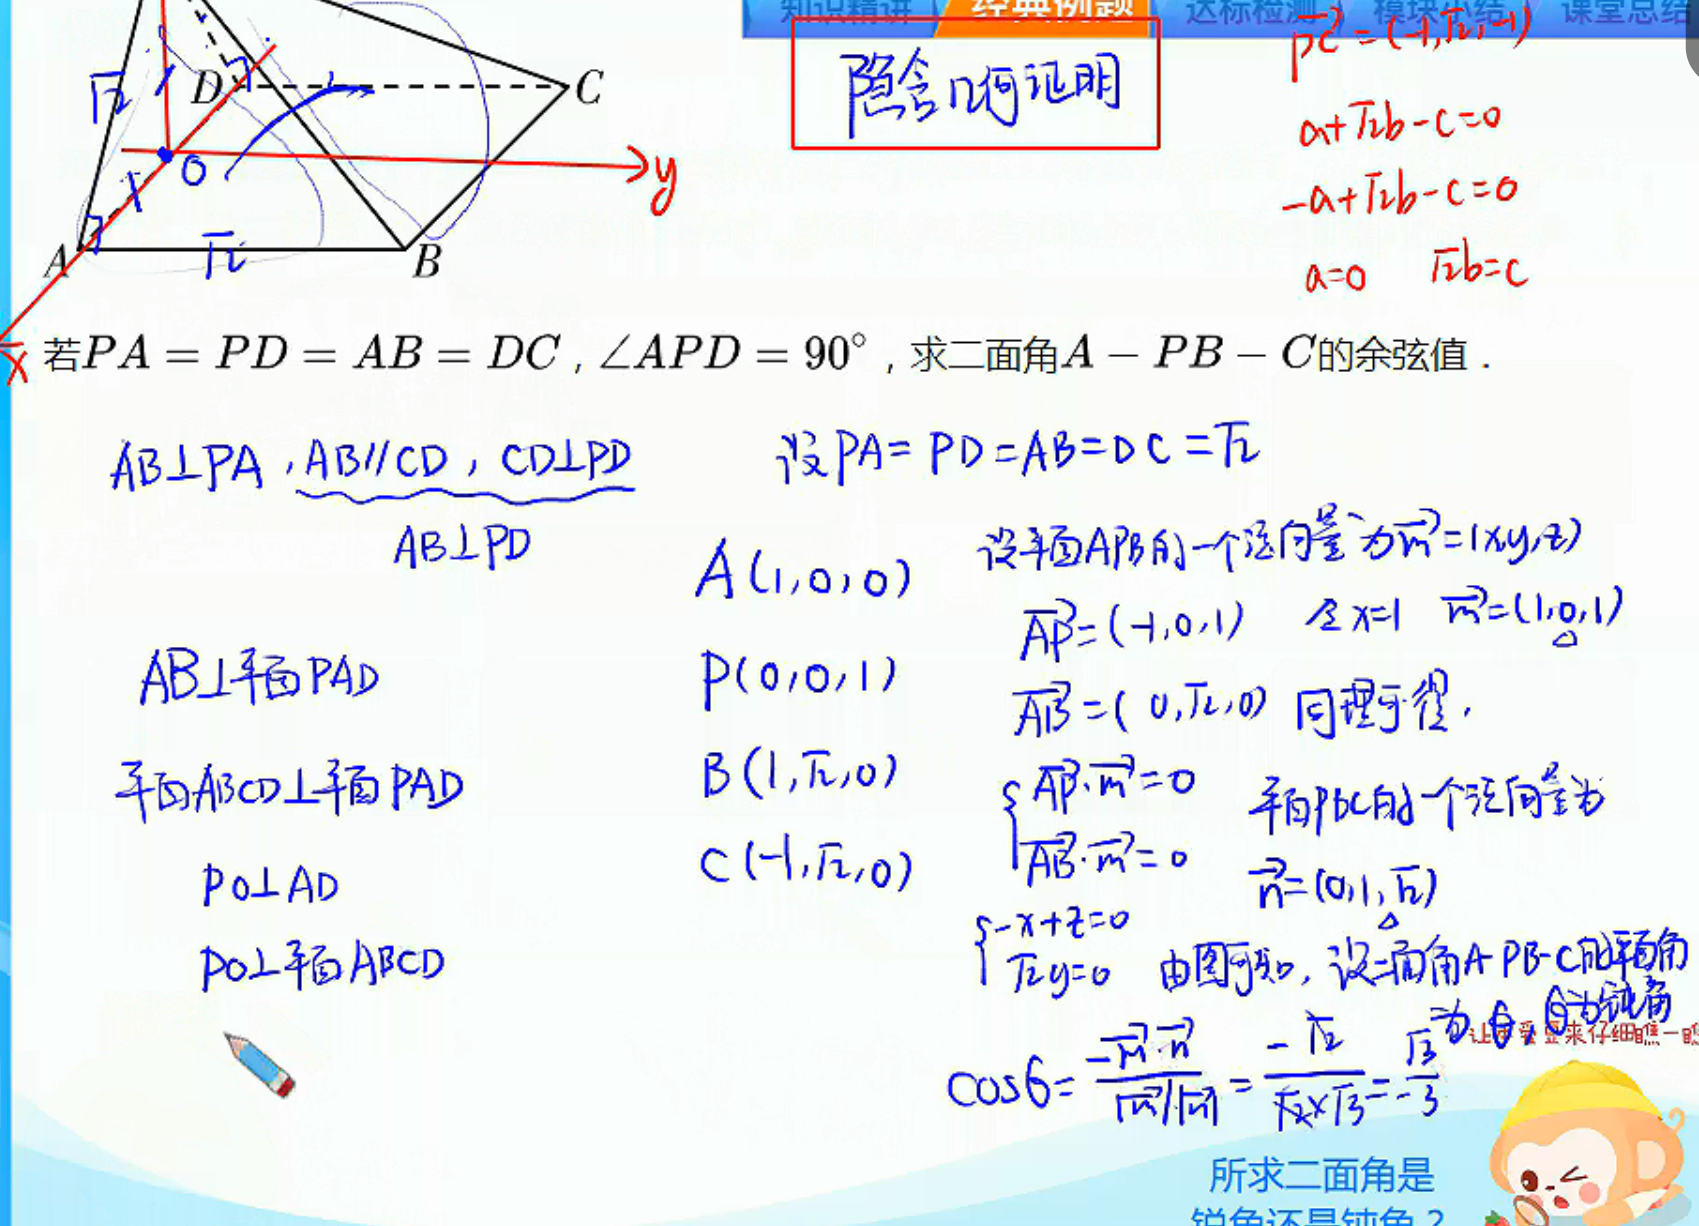 知识精讲 经典例题 达标检测 模块小结 课堂总结
隐含几何证明
PC=(-1,√2,-1)
a+√2b-c=0
-a+√2b-c=0
a=0 √2b=c
√2 D C
O y
1
A √2 B
x
若PA=PD=AB=DC,∠APD=90°,求二面角A-PB-C的余弦值.
AB⊥PA,AB∥CD,CD⊥PD
AB⊥PD
AB⊥平面PAD
平面ABCD⊥平面PAD
PO⊥AD
PO⊥平面ABCD
设PA=PD=AB=DC=√2
A(1,0,0)
P(0,0,1)
B(1,√2,0)
C(-1,√2,0)
设平面APB的一个法向量为m=(x,y,z)
AP=(-1,0,1) 令x=1 m=(1,0,1)
AB=(0,√2,0) 同理可得,
AP·m=0
AB·m=0
平面PBC的一个法向量为
n=(0,1,√2)
-x+z=0
√2y=0
由图可知,设二面角A-PB-C的平面角
为θ,θ为钝角
来仔细瞧一瞧
cosθ=-m·n/|m|·|n|=-√2/√2×√3=-√3/3
所求二面角是
锐角还是钝角?